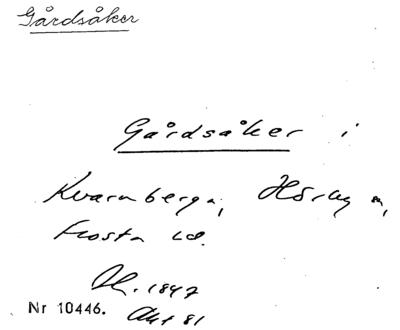 Gårdsåker
Gårdsåker i
Kvarnberga, Hörby sn,
Frosta hd.
Dl. 1847
Nr 10446. Akt 81